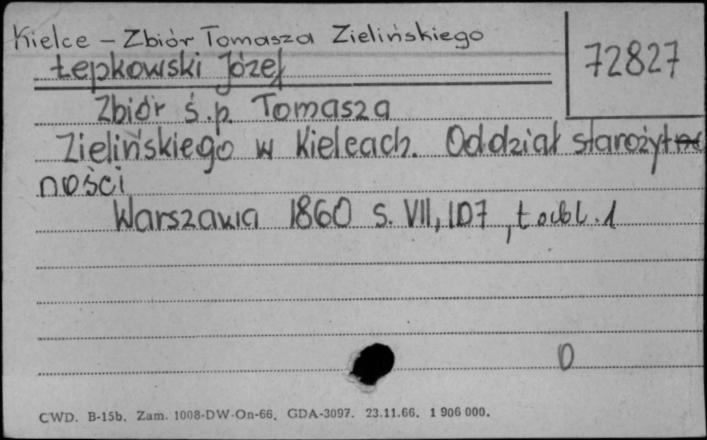 Kielce - Zbiór Tomasza Zielińskiego
72827
Łepkowski Józef
Zbiór ś.p. Tomasza
Zielińskiego w Kielcach. Oddział starożyt
ności
Warszawa 1860 s. VII, 107, tabl. 1
0
CWD. B-15b. Zam. 1008-DW-On-66. GDA-3097. 23.11.66. 1 906 000.